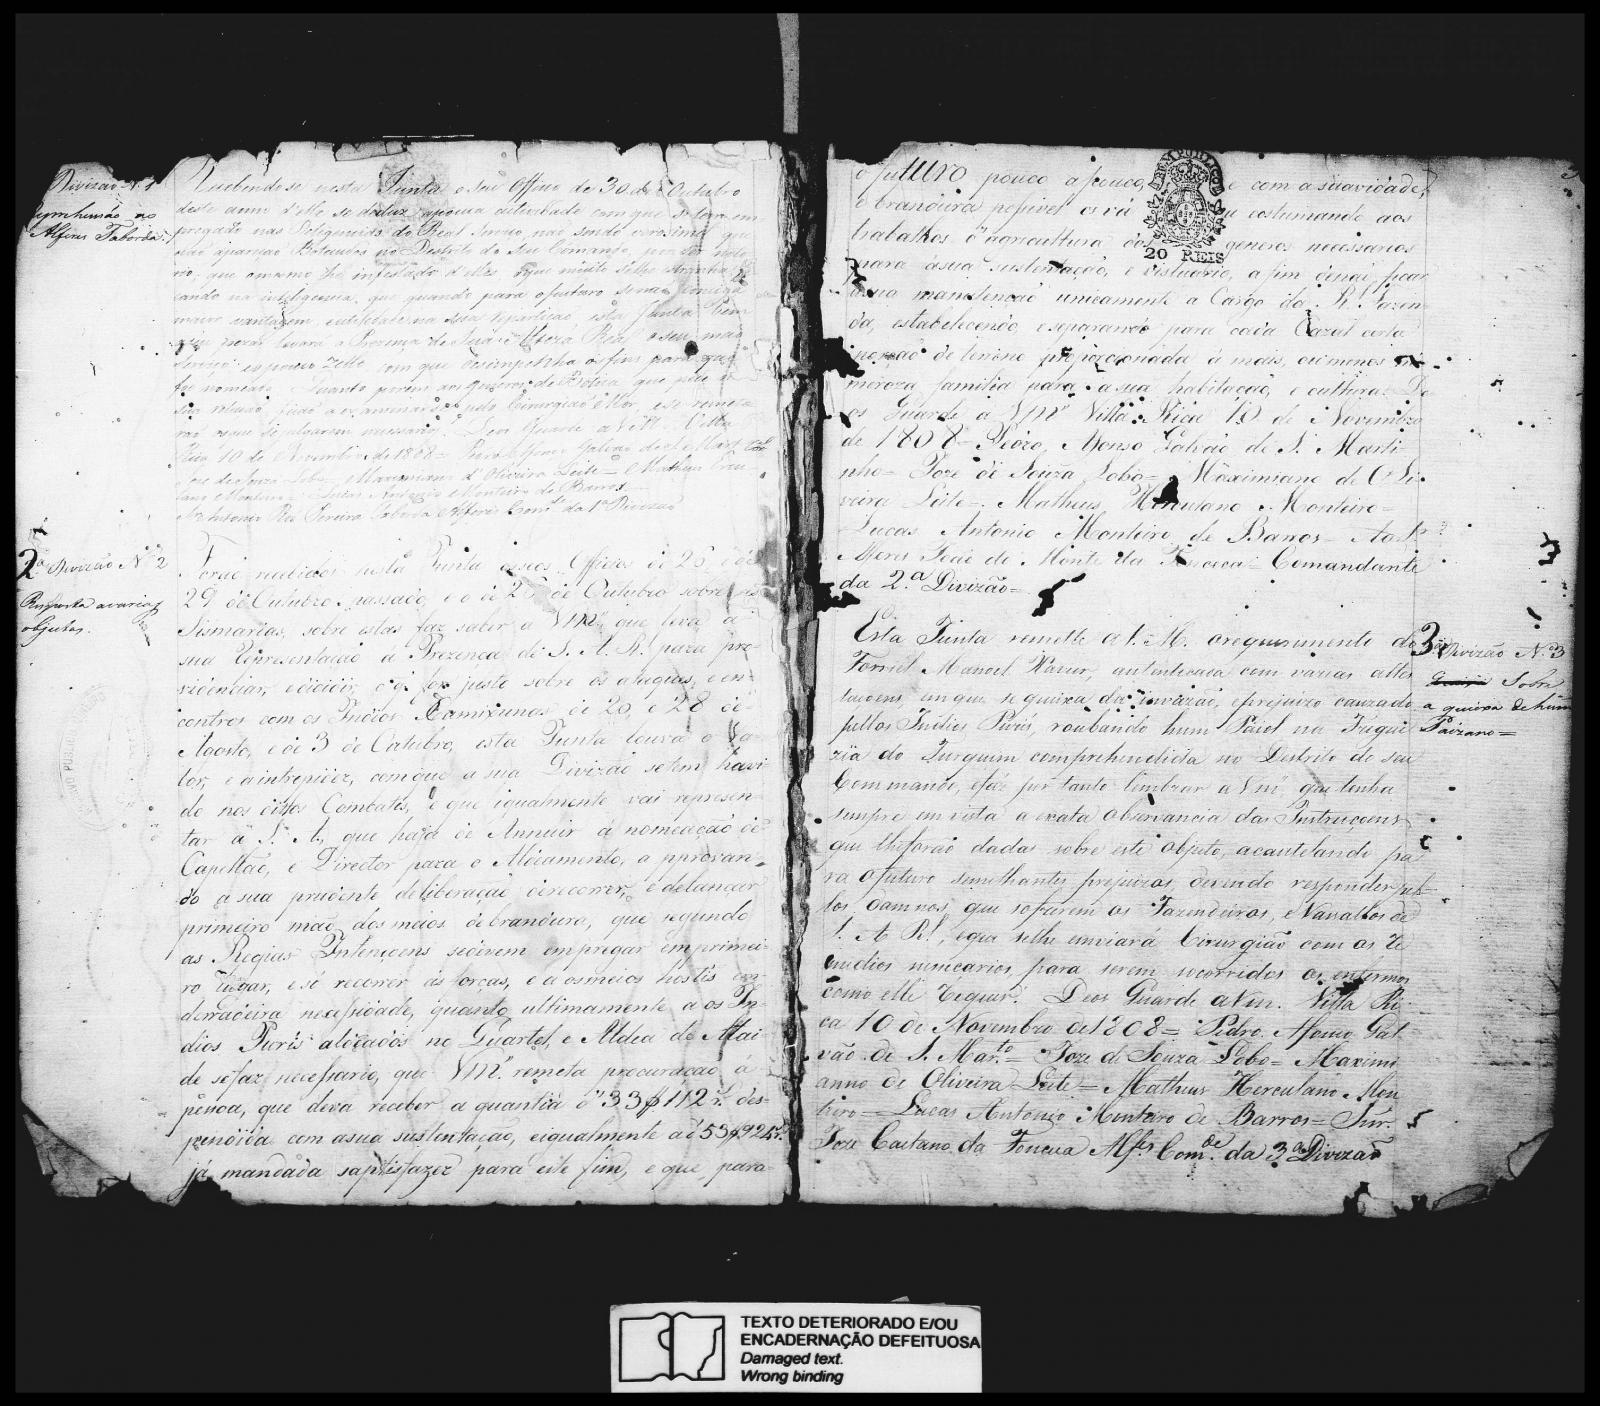 Divizão N. 1
Reprehensão ao
Alferes Taborda.
Recebendo-se nesta Junta o seu Officio de 30 de Outubro
deste anno d'elle se deduz a pouca actividade com que se tem em
pregado nas Deligencias do Real Serviço, não sendo verosimel que
não apareção Botecudos no Districto do seu Comando, por ser noto
rio, que o mesmo he infestado d'elles
cando na inteligencia, que quando para o futuro se não consiga
maior vantagem, entidade na sua repartição, esta Junta bem
a seu pezar levará a Prezença de Sua Alteza Real o seu mao
Serviço e o pouco zello com que dezimpenha os fins para que
foi nomeado. Quanto porem aos generos de Botica que pede a
sua relação, ficão a examinar-se pelo Cirurgião Mor, e se reme-
rão os que se julgarem necessarios. Deos Guarde a Vm. Villa
Rica 10 de Novembro de 1808 = Pedro Afonso Galvão de S. Mart.
Joze de Souza Lobo = Maximiano d'Oliveira Leite = Matheus Hercu
lano Monteiro = Lucas Antonio Monteiro de Barros =
Antonio Roiz Pereira Taborda Alferes Com.te da 1ª Divizão
2ª Divizão Nº 2
Resposta a varios
objectos.
Forão recebidos nesta Junta os seus Officios de 26, e de
29 de Outubro passado, e o de 25 de Outubro sobre as
Sismarias, sobre estas faz saber a Vmce que leva a
sua Representação á Prezença de S. A. R. para pro-
videnciar, e decidir, o q. for justo sobre os ataques, e en-
contros com os Indios Camixunas de 20, e 28 de
Agosto, e de 3 de Outubro, esta Junta louva o Va-
lor, e a intrepidez, com que a sua Divizão se tem havi-
do nos ditos Combates, e que igualmente vai represen-
tar a S. A., que haja de Annuir á nomeação de
Capellão, e Director para o Aldeamento, approvan-
do a sua prudente deliberação de recorrer, e de lançar
primeiro mão dos meios de brandura, que segundo
as Regias Intençoens se devem empregar em primei-
ro lugar, e só recorrer ás forças, e aos meios hostis em
derradeira necessidade, quanto ultimamente aos In-
dios Puris aldeados no Quartel, e Aldea de Atai-
de se faz necessario, que Vm.ce remeta procuração á
pessoa, que deva receber a quantia d' 33$112 rs. des-
pendida com a sua sustentação, e igualmente a de 53$925 rs.
já mandada sapttisfazer para este fim, e que, para
o futuro pouco a pouco, e com a suavidade,
e brandura possivel os vá costumando aos
trabalhos d'agricultura dos generos necessarios
para a sua sustentação, e vistuario, a fim de não ficar
a sua manutenção unicamente a Cargo da Rl. Fazen-
da, estabelecendo, e separando para cada Cazal certa
porção de terreno proporcionada á mais, ou menos nu-
meroza familia para a sua habitação, e cultura. De-
os Guarde a Vmce Villa Rica 10 de Novembro
de 1808 = Pedro Afonso Galvão de S. Marti-
nho = Joze de Souza Lobo = Maximiano de Oli-
veira Leite = Matheus Herculano Monteiro =
Lucas Antonio Monteiro de Barros = Ao Sr.
Alferes João do Monte da Fonceca = Comandante
da 2.ª Divizão =
EMP. PUBLICO
20 REIS
3ª Divizão N.º 3
Sobre
a queixa de hum
Paizano =
Esta Junta remette a V. M. o requerimento de
Torriel Manoel Xavier, autenticado com varias attes
taçoens, em que se queixa da invazão, e prejuizo cauzado
pellos Indios Puris, roubando hum Paiol na Fregue
zia do Furquim comprehendida no Destrito do seu
Commando, e faz por tanto lembrar a Vm.ce que tenha
sempre em vista a exata observancia das Instruçoens
que lhe forão dadas sobre este objeto, acautelando pa
ra o futuro semelhantes prejuizos, devendo responder pel-
los damnos, que sofrerem os Fazendeiros, e Vassallos de
S. A. Rl., e que se lhe enviará Cirurgião com os re
medios nessesarios para serem socorridos os enfermos
como elle requer. Deos Guarde a Vm. Villa Ri-
ca 10 de Novembro de 1808 = Pedro Afonço Gal
vão de S. Mar.to = Joze de Souza Lobo = Maximi
anno de Oliveira Leite = Matheus Herculano Mon
teiro = Lucas Antonio Montero de Barros = Snr.
Joze Caetano da Fonceca Alf.s Com.de da 3ª Divizão
TEXTO DETERIORADO E/OU
ENCADERNAÇÃO DEFEITUOSA
Damaged text.
Wrong binding